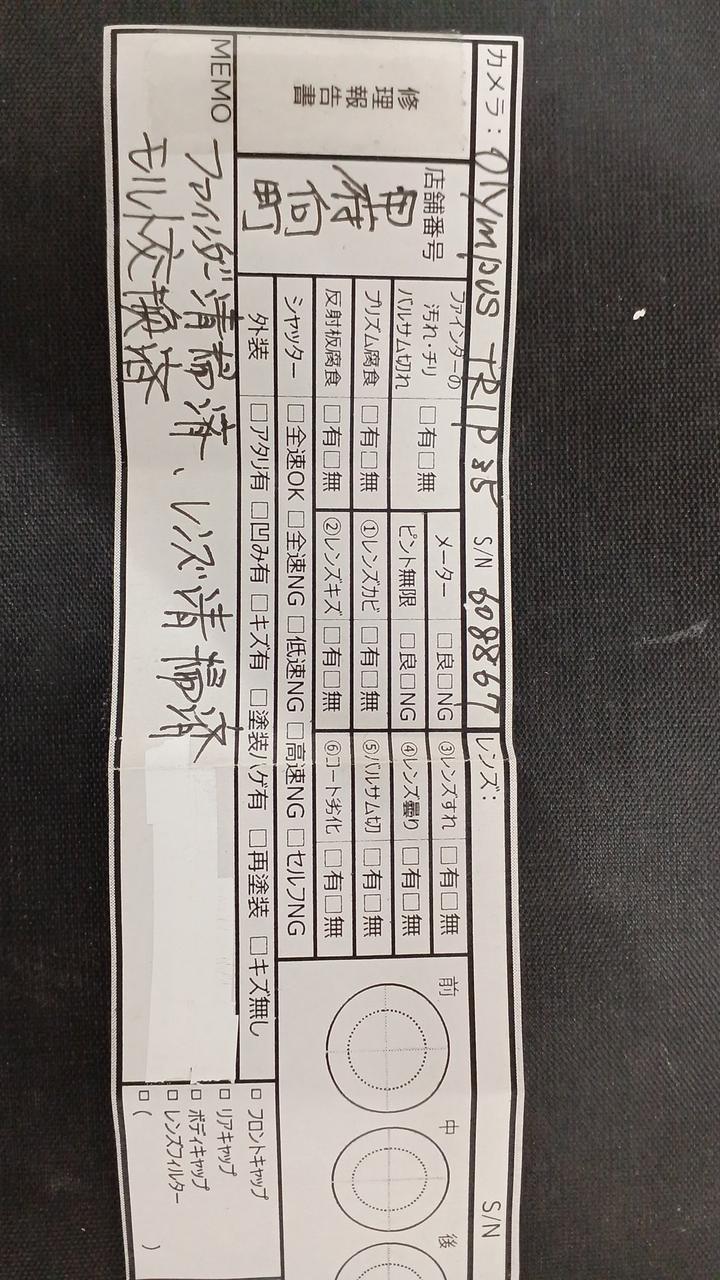 カメラ: Olympus TRIP 35 S/N 608867 レンズ: S/N
修理報告書
店舗番号
ファインダーの汚れ・チリ
バルサム切れ □有□無
プリズム腐食 □有□無
反射板腐食 □有□無
メーター □良□NG
ピント無限 □良□NG
①レンズカビ □有□無
②レンズキズ □有□無
③レンズすれ □有□無
④レンズ曇り □有□無
⑤バルサム切 □有□無
⑥コート劣化 □有□無
シャッター □全速OK □全速NG □低速NG □高速NG □セルフNG
外装 □アタリ有 □凹み有 □キズ有 □塗装ハゲ有 □再塗装 □キズ無し
前 中 後
MEMO
ファインダー清掃済、レンズ清掃済
モルト交換済
□ フロントキャップ
□ リアキャップ
□ ボディキャップ
□ レンズフィルター
□ ( )